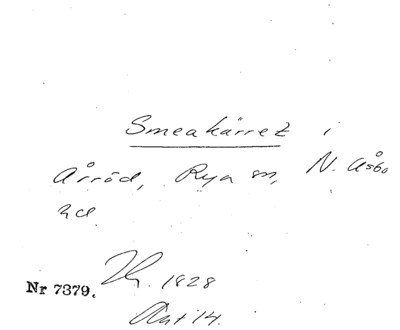 Smeakärret i
Årröd, Rya sn, N. Åsbo
hd
Nr 7379. 1828
Akt 14.